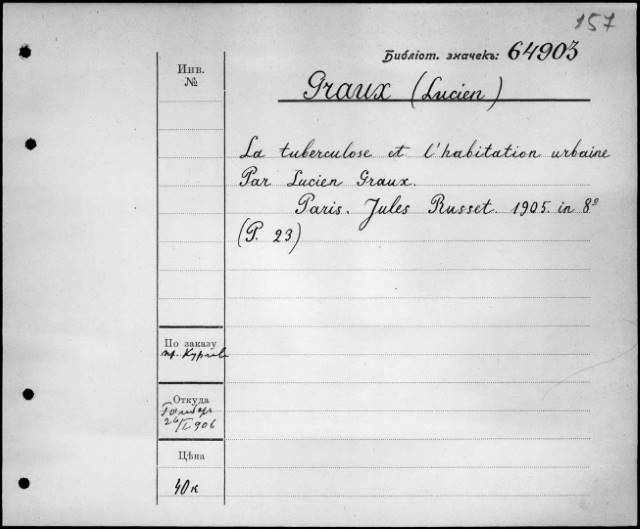 157
Библіот. значекъ: 64903
Инв.
№
Graux (Lucien)
La tuberculose et l'habitation urbaine
Par Lucien Graux.
Paris. Jules Russet. 1905. in 8º
(P. 23)
По заказу
пр.
Откуда
26/I 906
Цѣна
40 к